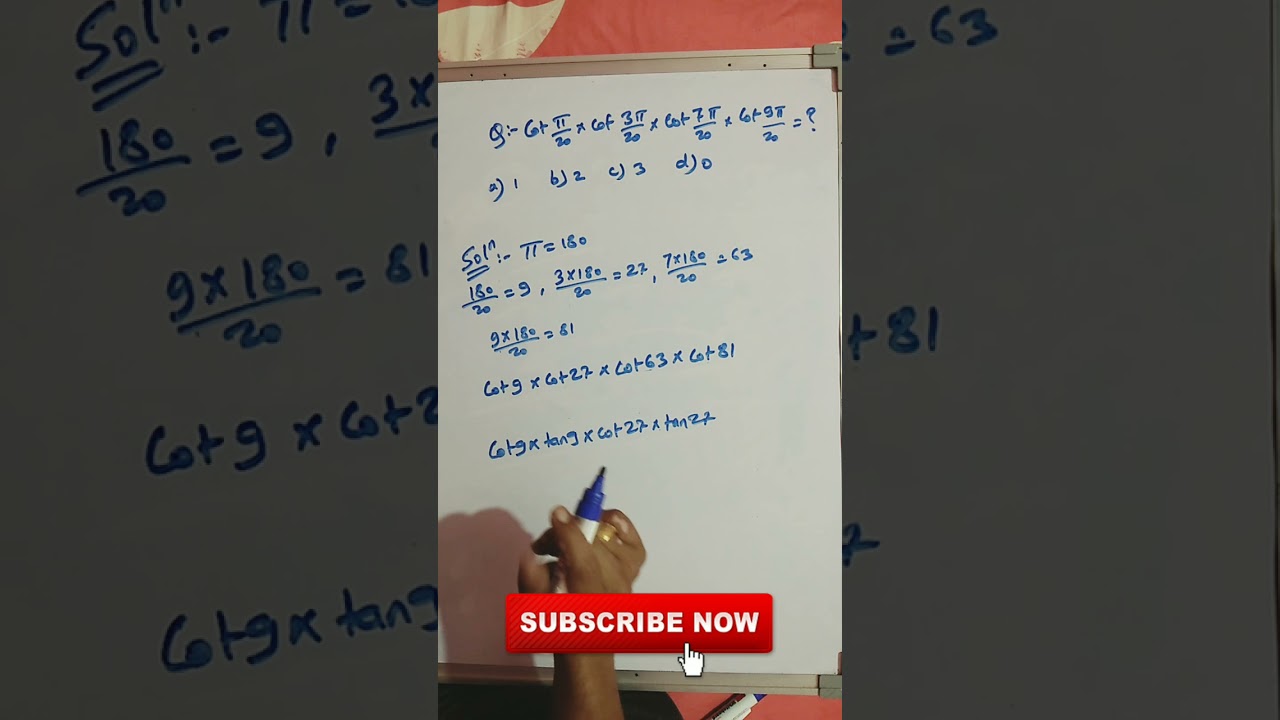 Q:- Cot π/20 × Cot 3π/20 × Cot 7π/20 × Cot 9π/20 = ?
a) 1 b) 2 c) 3 d) 0
Solⁿ:- π = 180
180/20 = 9, 3×180/20 = 27, 7×180/20 = 63
9×180/20 = 81
Cot 9 × Cot 27 × Cot 63 × Cot 81
Cot 9 × tan 9 × Cot 27 × tan 27
SUBSCRIBE NOW